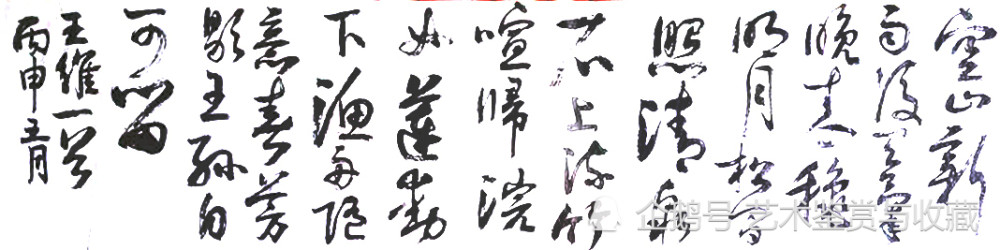 空山新
雨後天氣
晚来秋
明月松間
照清泉
石上流竹
喧歸浣
女蓮動
下漁舟随
意春芳
歇王孫自
可留
王維一首
丙申五月
企鹅号 艺术鉴赏与收藏